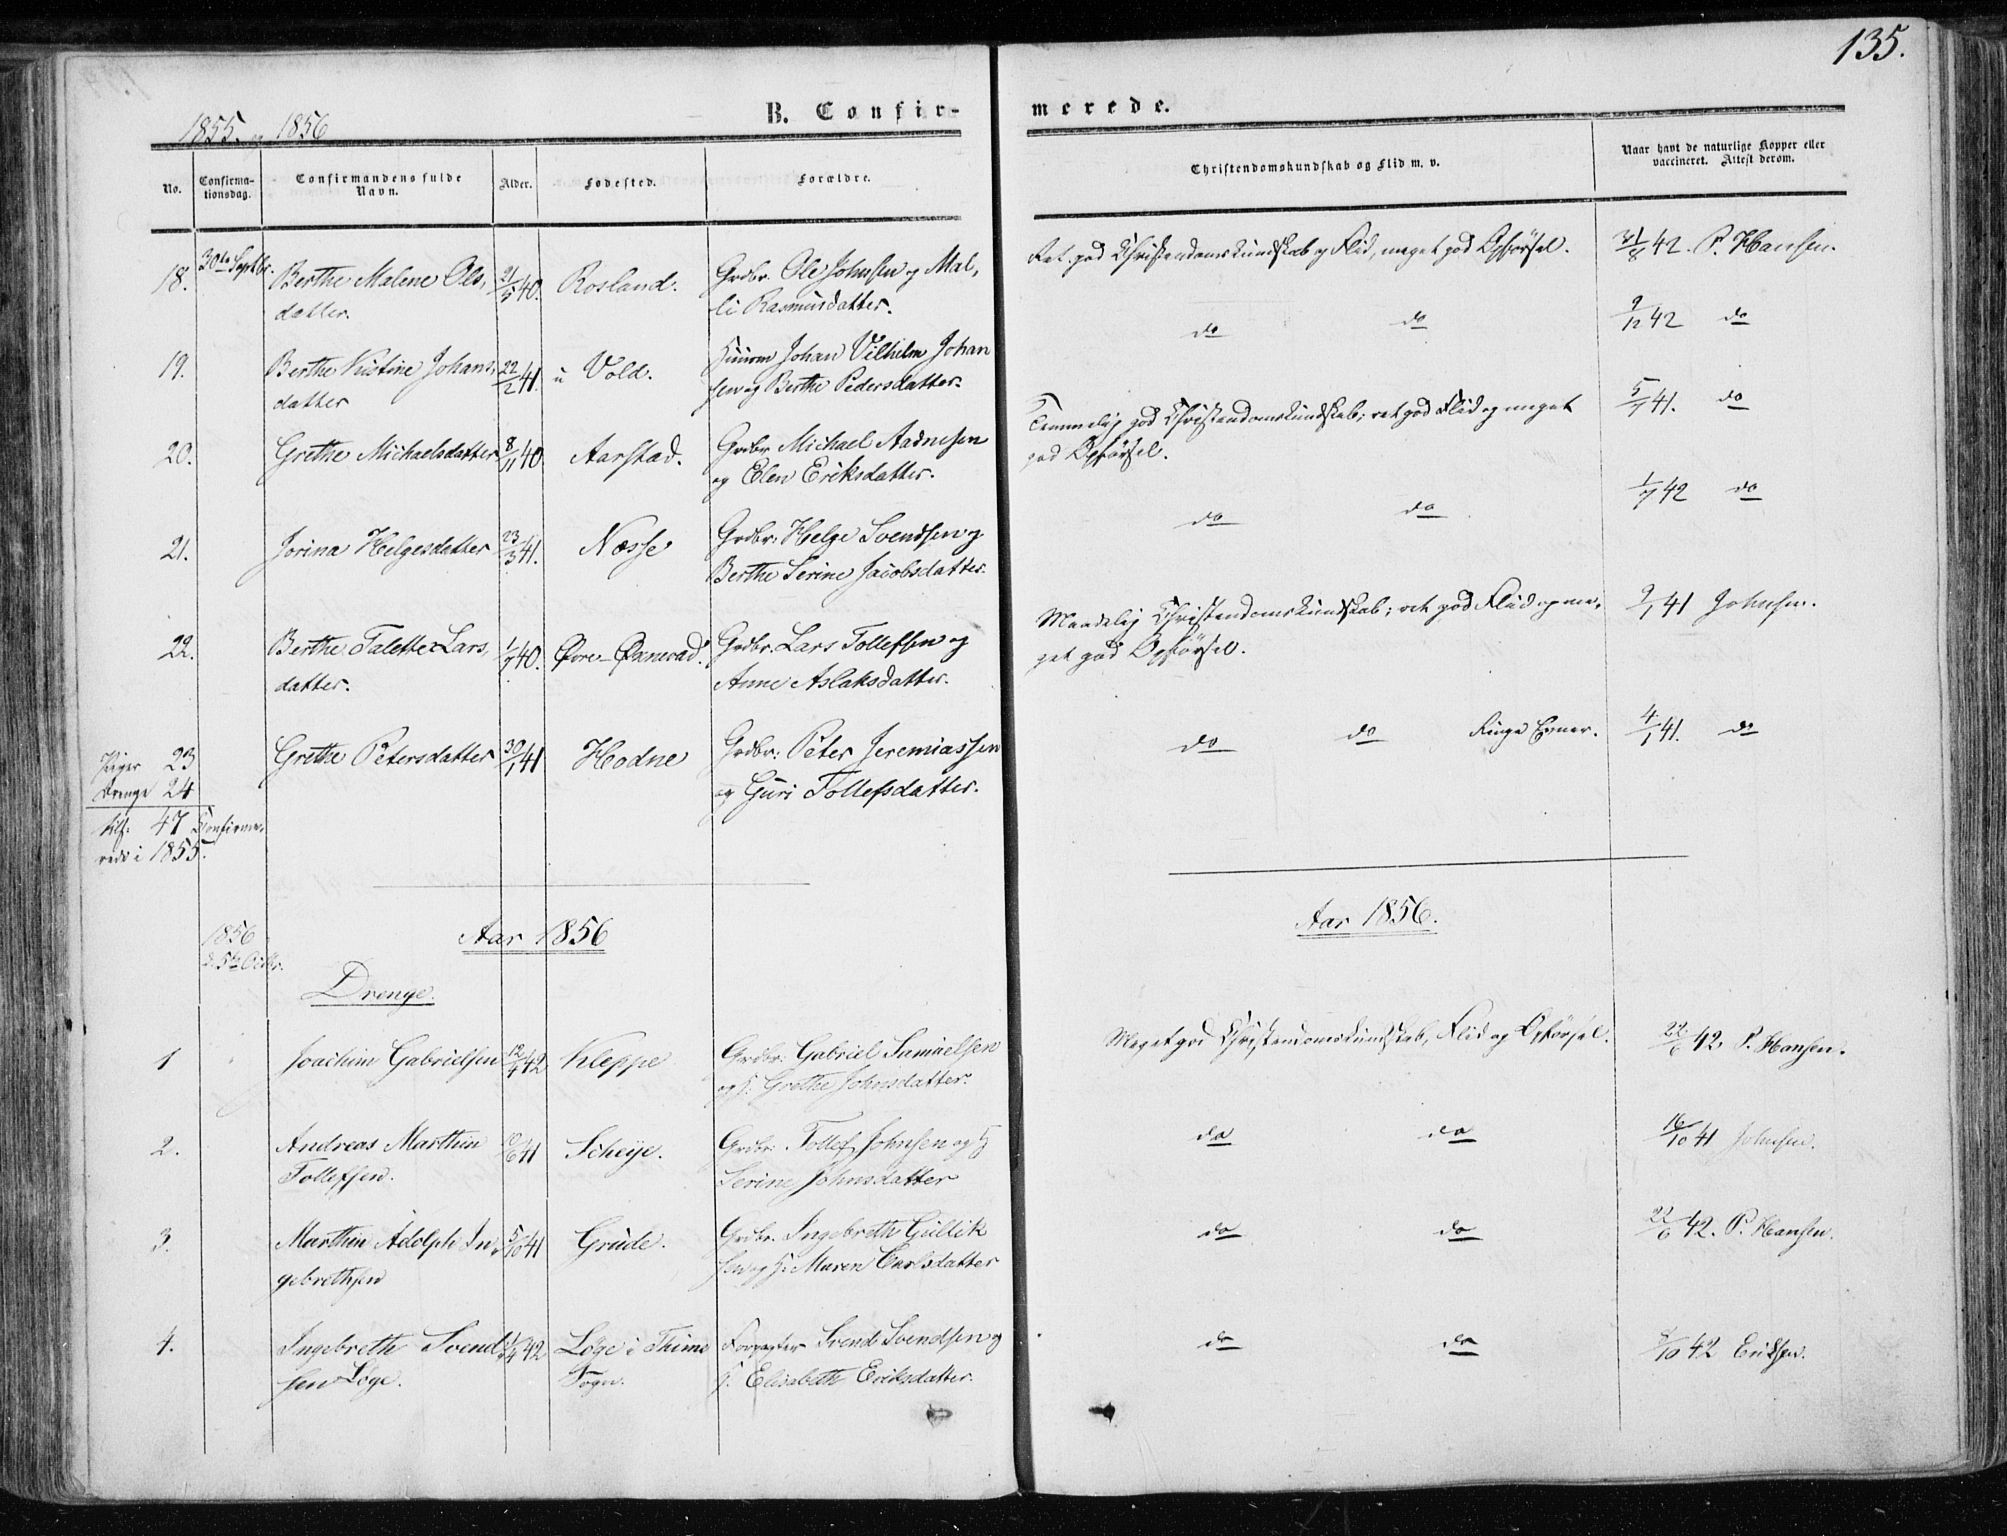 135.
1855. og 1856
B. Confir-
merede.
No.
Confirma-
tionsdag.
Confirmandens fulde
Navn.
Alder.
Fødested.
Forældre.
Christendomskundskab og Flid m. v.
Naar havt de naturlige Kopper eller
vaccineret. Attest derom.
30te Septbr.
18. Berthe Malene Ols, 21/5 40. Rosland. Grdbr. Ole Johnsen og Mal,
datter. li Rasmusdatter.
Ret god Christendomskundskab og Flid, meget god Opførsel. 31/8 42. P. Hansen.
19. Berthe Kistine Johans, 22/2 41. Vold. Johan Vilhelm Johan
datter sen og Berthe Pedersdatter.
do do 9/12 42 do
20. Grethe Michaelsdatter 8/11 40 Aarstad. Grdbr Michael Aadnesen
og Elen Eriksdatter.
Temmelig god Christendomskundskab; ret god Flid og meget 5/7 41. do
god Opførsel.
21. Jorina Helgesdatter 23/3 41. Næsse Grdbr. Helge Svendsen og
Berthe Serine Jacobsdatter.
do do 1/7 42 do
22. Berthe Talette Lars, 1/7 40. Øvre-Øxnevad. Grdbr. Lars Tollefsen og
datter. Anne Aslaksdatter.
Maadelig Christendomskundskab; ret god Flid og me, 9/1 41 Johnsen.
get god Opførsel.
Piger 23 Grethe Petersdatter 30/1 41 Hodne Grdbr: Peter Jeremiassen
Drenge 24 og Guri Tollefsdatter.
do do Ringe Evner. 4/1 41. do
47 Confirme,
rede i 1855.
Aar 1856
Aar 1856.
1856
d. 5te Octbr.
Drenge.
1 Joachim Gabrielsen 12/4 42 Kleppe Grdbr. Gabriel Samuelsen
og H. Grethe Johnsdatter.
Meget god Christendomskundskab, Flid og Opførsel. 22/6 42 P. Hansen.
2. Andreas Marthin 10/6 41 Scheije. Grdbr. Tollef Johnsen og H
Tollefsen. Serine Johnsdatter
do do 16/10 41 Johnsen.
3. Marthin Adolph In, 5/10 41 Grude. Grdbr. Ingebreth Gullik
gebrethsen sen og H. Maren Carlsdatter
do do 22/6 42. P. Hansen.
4. Ingebreth Svend 1/4 42 Løge i Thime Forpagter Svend Svendsen og
sen Løge. Sogn. H. Elisabeth Eriksdatter.
do do 8/10 42 Eriksen.